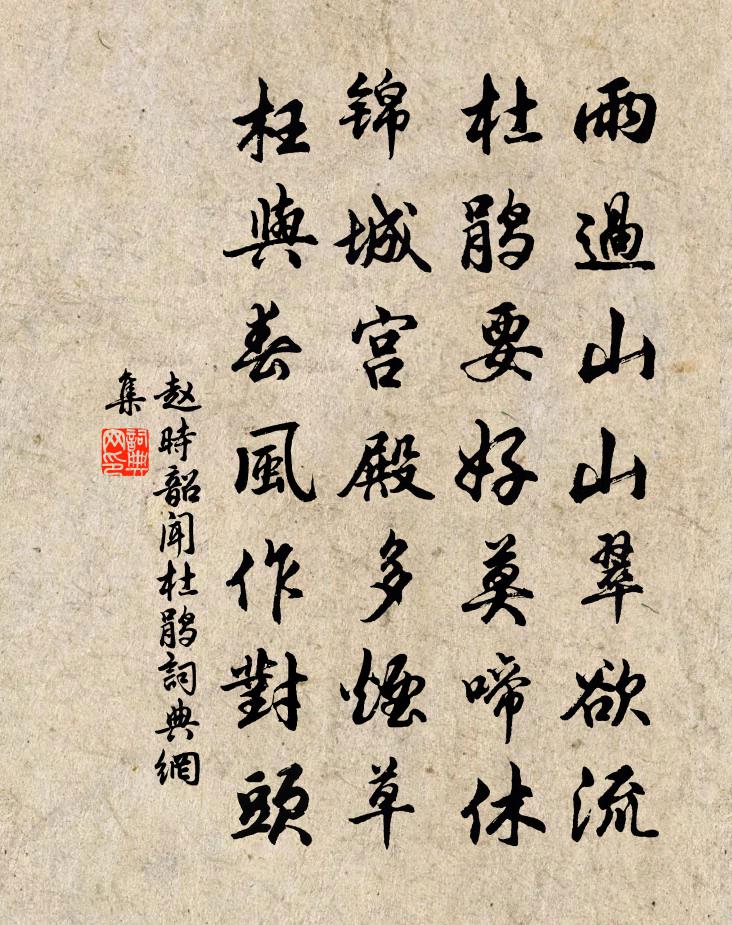 雨過山山翠欲流
杜鹃要好莫啼休
锦城宫殿多煙草
枉與春風作對頭
赵時韶闻杜鹃詞典網
集
詞典
网印